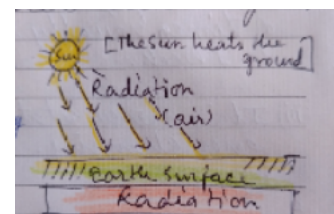 Sun
[The Sun heats the
ground]
Radiation
(air)
Earth Surface
Radiation